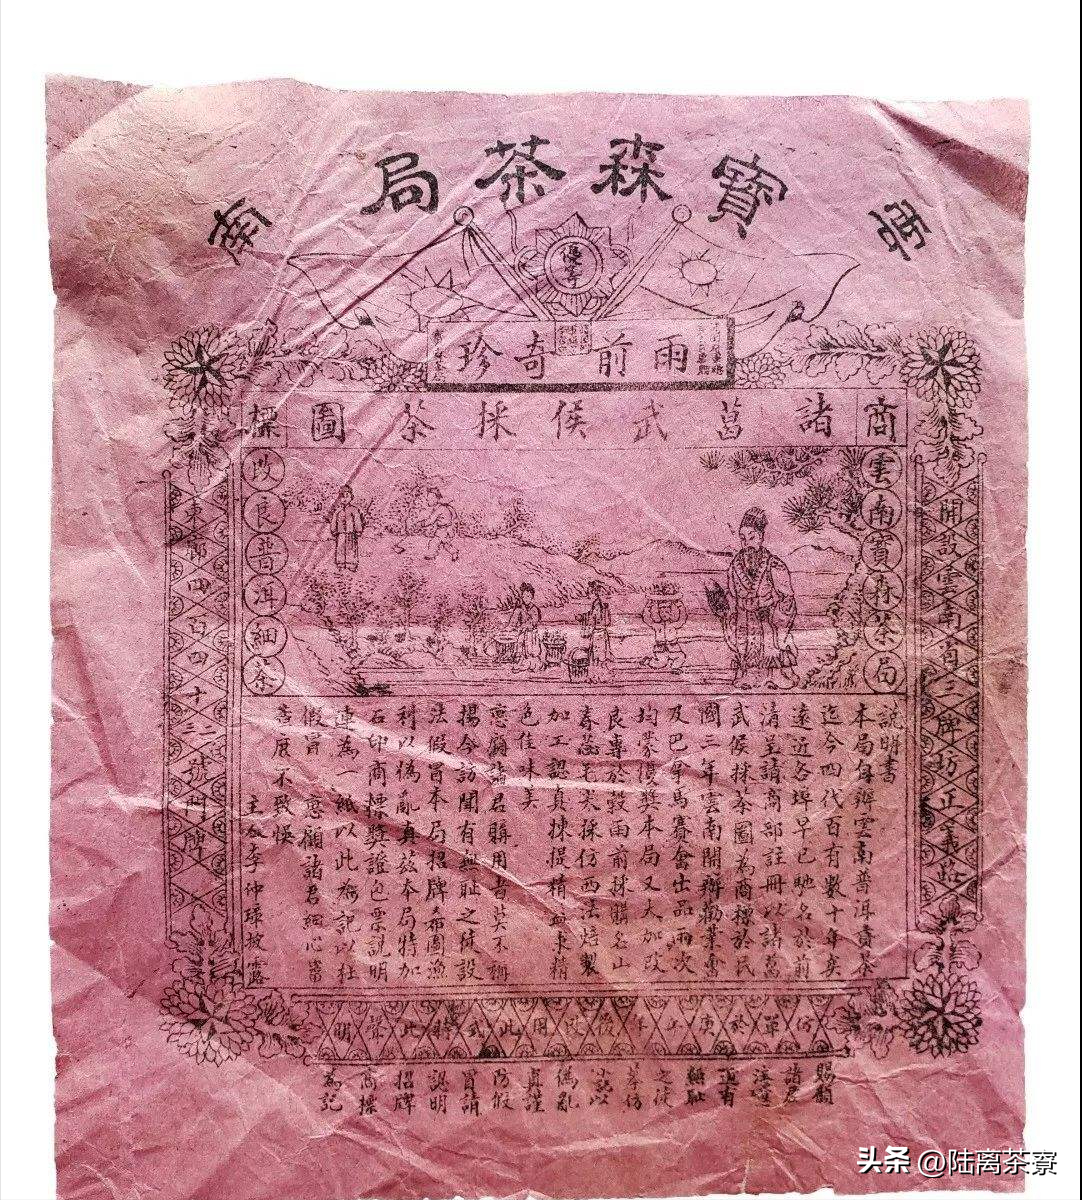 雲
寶森茶局
南
優等
雨前奇珍
商標
諸葛武侯採茶圖
雲南寶森茶局
改良普洱細茶
開設雲南省三牌坊正義路
東廊四百四十三號門牌
說明書
本局自辦雲南普洱貢茶
迄今四代百有數十年矣
遠近各埠早已馳名於前
清呈請商部註冊以諸葛
武侯採茶圖為商標於民
國三年雲南開辦勸業會
及巴拿馬賽會仕品兩次
均蒙優獎本局又大加改
良專於穀雨前採購名山
春蕊毛尖採仿西法焙製
加工認真揀提精益求精
色佳味美
惠顧諸君購用者莫不稱
揚今訪聞有無恥之徒設
法假冒本局招牌希圖漁
利以偽亂真茲本局特加
石印商標獎證包票說明
連為一紙以此為記以杜
假冒 惠顧諸君細心審
查庶不致悞
主人李仲 披露
仿單於庚 年份改用此式特此聲明
賜顧
諸君
注意
近有
無恥
之徒
摹仿
記以
偽亂
真謹
防假
冒請
認明
招牌
商標
為記
头条 @陆离茶寮